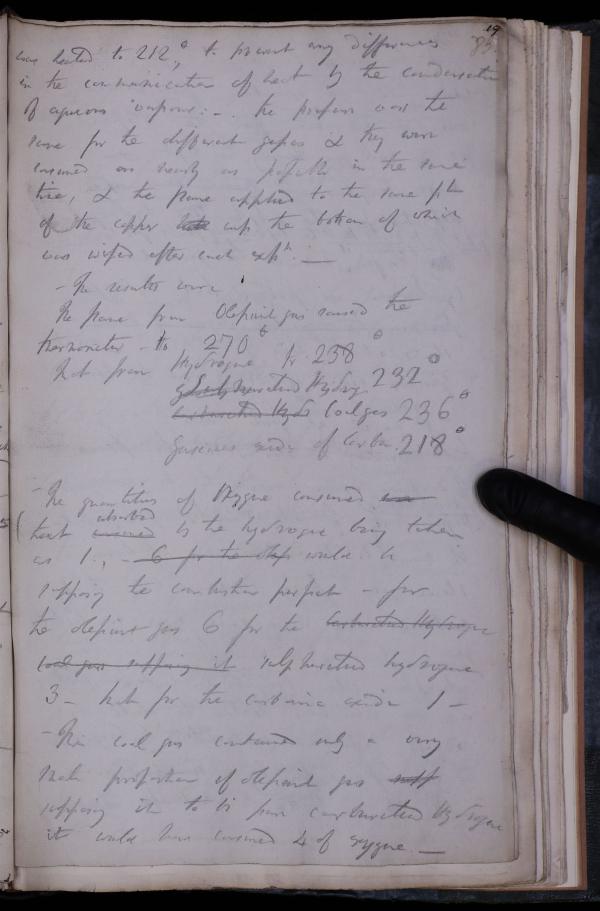 19
85
was heated to 212°, to prevent any differences
in the communication of heat by the condensation
of aqueous vapour: - . the pressure was the
same for the different gases & they were
consumed as nearly as possible in the same
time, & the flame applied to the same
of the copper the bottom of which
was wiped after each expt. —
- The results were
The flame from Olefiant gas raised the
thermometer - to 270°
that from Hydrogene to 238°
Sulphuretted Hydrog 232°
Carburetted Hydr Coal gas 236°
Gaseous oxide of Carbon 218°
- The quantities of Oxygene consumed
that absorbed consumed by the hydrogene being taken
as 1, - 6 for the olef would be
supposing the combustion perfect - for
the olefiant gas 6 for the Carburetted Hydrogene
coal gas supposing it sulphuretted hydrogene
3 - that for the carbonic oxide 1 -
- The coal gas contained only a very
small proportion of olefiant gas supp
supposing it to be pure carburetted Hydrogene
it would have consumed 4 of oxygene. —